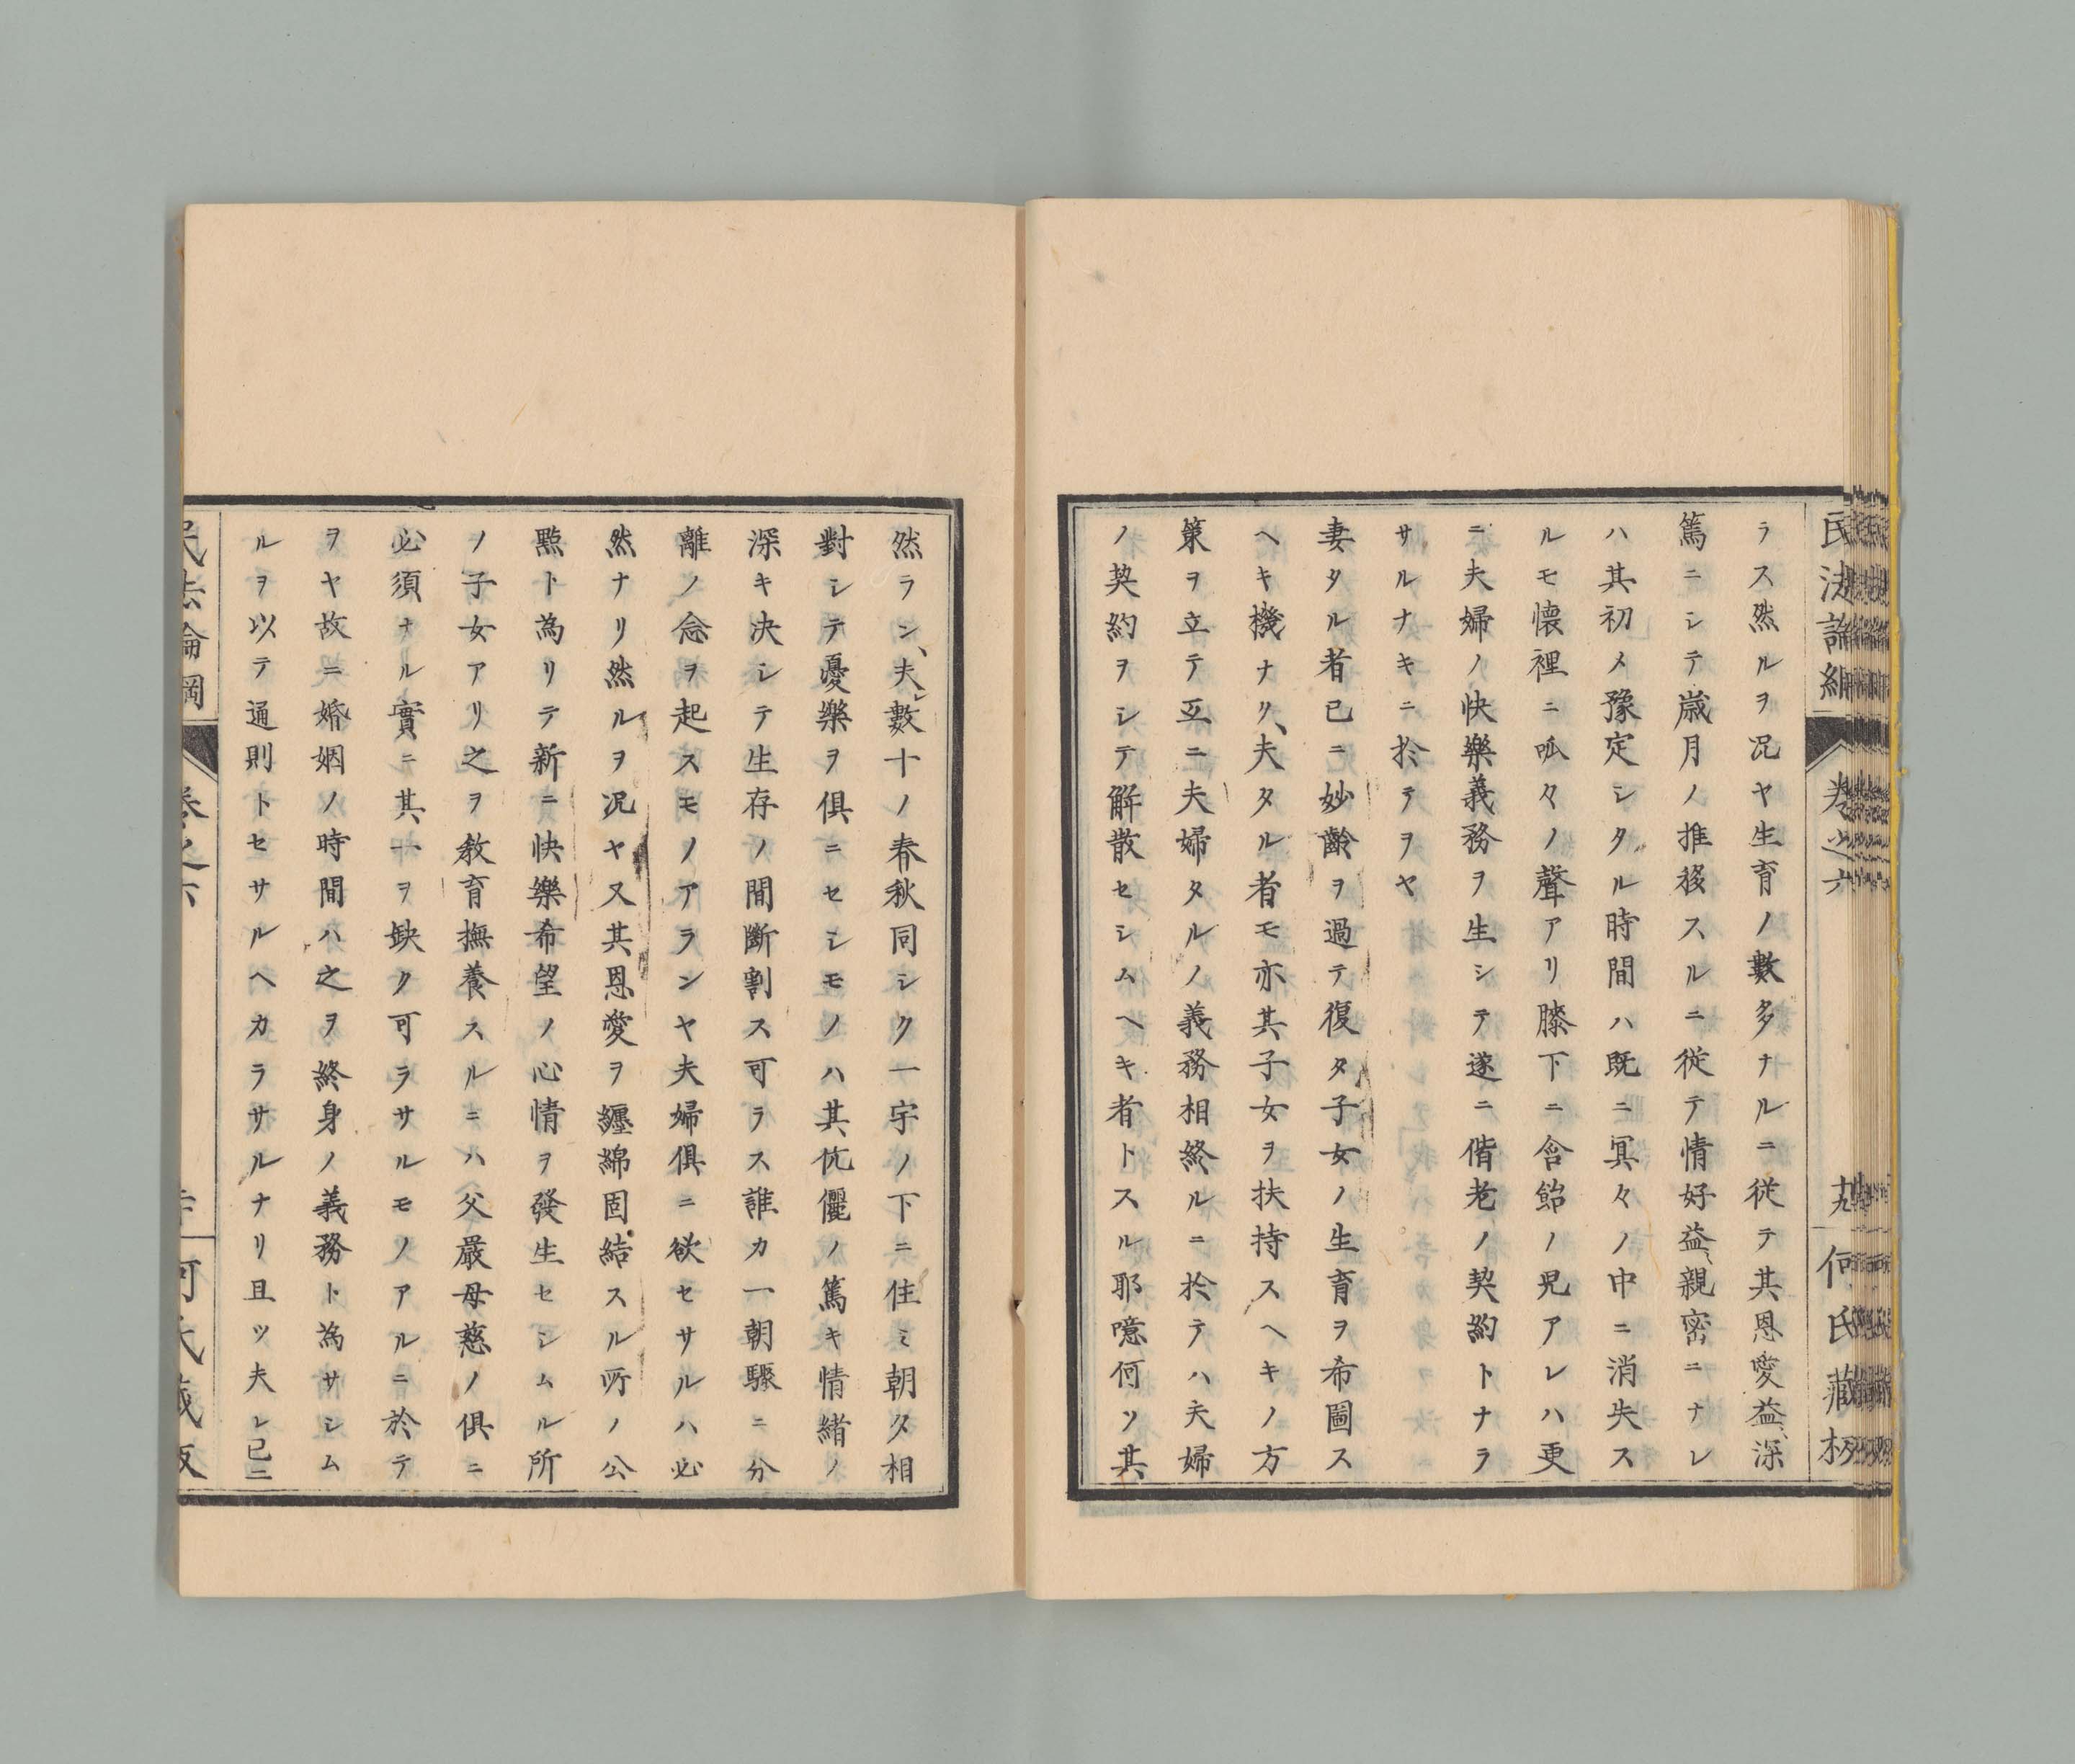 民法論綱
卷之六
十九
何氏藏板
ラス然ルヲ况ヤ生育ノ數多ナルニ従テ其恩愛益〻深
篤ニシテ歳月ノ推移スルニ従テ情好益〻親密ニナレ
ハ其初メ豫定シタル時間ハ既ニ冥々ノ中ニ消失ス
ルモ懐裡ニ呱々ノ聲アリ膝下ニ含飴ノ兒アレハ更
ニ夫婦ノ快樂義務ヲ生シテ遂ニ偕老ノ契約トナラ
サルナキニ於テヲヤ
妻タル者已ニ妙齡ヲ過テ復タ子女ノ生育ヲ希圖ス
ヘキ機ナク、夫タル者モ亦其子女ヲ扶持スヘキノ方
策ヲ立テ互ニ夫婦タルノ義務相終ルニ於テハ夫婦
ノ契約ヲシテ解散セシムヘキ者トスル耶噫何ソ其
然ラン、夫レ數十ノ春秋同シク一宇ノ下ニ住ミ朝タ相
對シテ憂樂ヲ俱ニセシモノハ其伉儷ノ篤キ情緒ノ
深キ决シテ生存ノ間斷割ス可ラス誰カ一朝驟ニ分
離ノ念ヲ起スモノアランヤ夫婦俱ニ欲セサルハ必
然ナリ然ルヲ况ヤ又其恩愛ヲ纏綿固結スル所ノ公
點ト為リテ新ニ快樂希望ノ心情ヲ發生セシムル所
ノ子女アリ之ヲ敎育撫養スルニハ父嚴母慈ノ俱ニ
必須ナル實ニ其一ヲ缺ク可ラサルモノアルニ於テ
ヲヤ故ニ婚姻ノ時間ハ之ヲ終身ノ義務ト為サシム
ルヲ以テ通則トセサルヘカラサルナリ且ツ夫レ已ニ
民法論綱
卷之六
何氏藏板